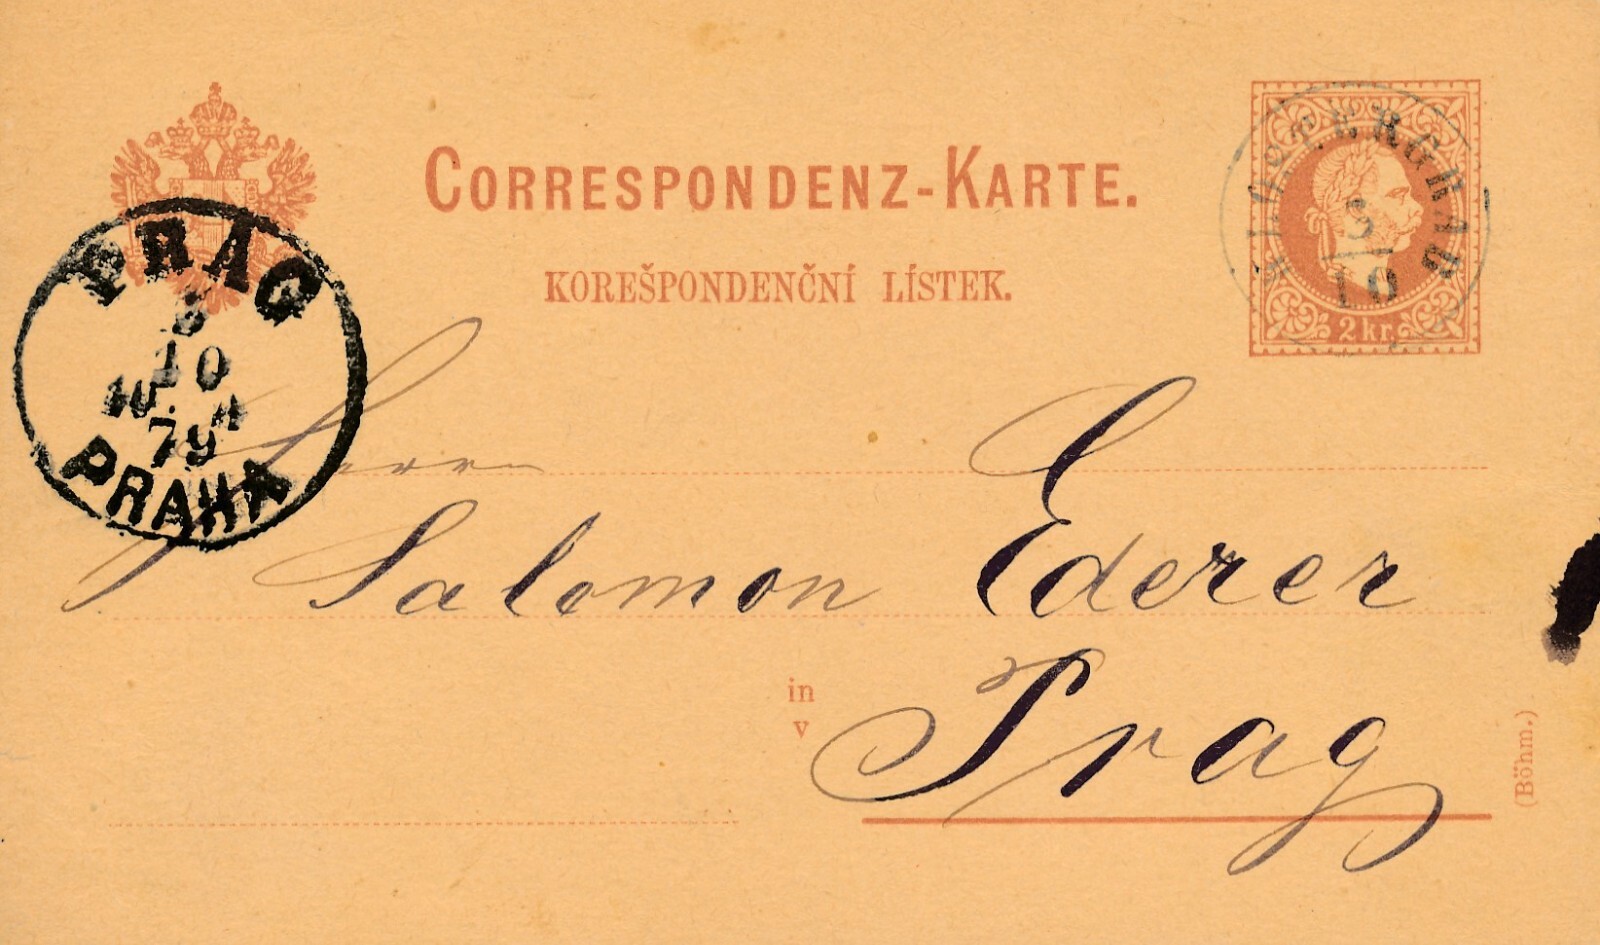 CORRESPONDENZ-KARTE.
KOREŠPONDENČNÍ LÍSTEK.
2 kr.
KLOSTERGRAB
5
10
PRAG
10
79
PRAHA
Herrn
Salomon Ederer
in
v
Prag
(Böhm.)